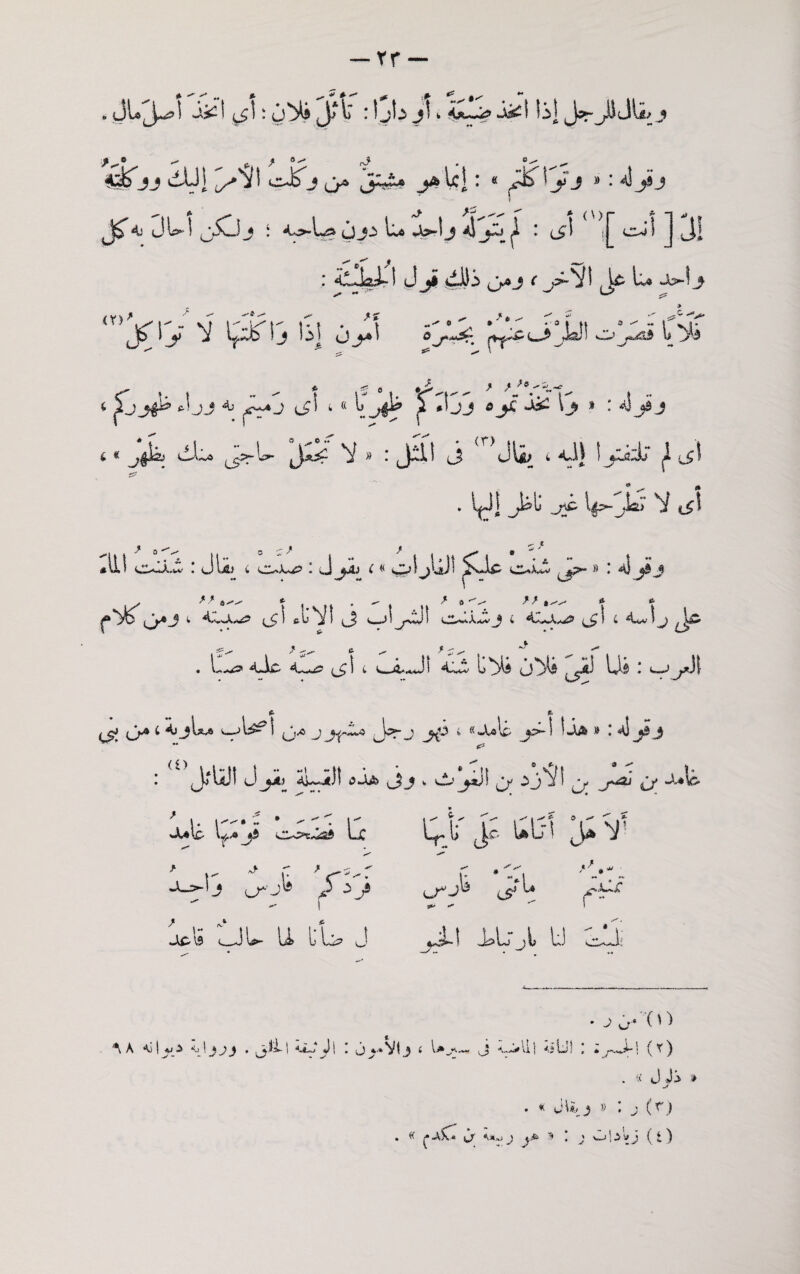 — ٢٣ —
ويقال للرجل إذا اتخذ ضيعة . أو دارا : تأثل فلان : أي اتخذ أصل مال .
وقوله : « تواكل » : إنما هو مشتق من وكلت الأمر إليك ووكلته
إلى [ أنت ](١) أي : لم يتوله واحد ما دون صاحبه : ولكن أحال به كل
واحد ما على الآخر ، ومن ذلك قول الحطيئة :
فلأيا قصرت الطرف عنهم بجسرة أمون إذا واكلتها لا تواكل(٢)
وقوله : « واتخذتموه وراءكم ظهريا » ، أي رميتم به وراء ظهوركم ،
أي لم تلتفتوا إليه ، ويقال(٣) في المثل : « لا تجعل حاجتي منك بظهر » ،
أي لا تطرحها غير ناظر إليها .
وقوله : « حتى شنت عليكم الغارات » ، يقول : صبت ، يقال : شننت الماء
على رأسه ، أي صببته ، وشننت الشراب في الإناء أي صببته ، ومن كلام
العرب : فلما لقي فلان فلانا شنه السيف ، أي صبه عليه صبا .
وقوله : « هذا أخو غامد » ، فهو رجل مشهور من أصحاب معاوية ، من بنى
غامد بن نصر بن الأزد بن الغوث . وفي هذه القبيلة يقول القائل(٤) :
ألا هل أتاها على نأيها بما فضحت قومها غامد
تمنيتم مائتي فارس فردكم فارس واحد
فليت لنا بارتباط الخيول ضأنا لها حالب قاعد
(١) من ر .
(٢) الجسرة : الناقة الماضية في سيرها ، والأمون : الموثقة الخلق . وروايته ديوانه ٩٨
« ذلل » .
(٣) ر : « ويقال » .
(٤) وزيادات ر : « هو ربيعة بن مكدم » .